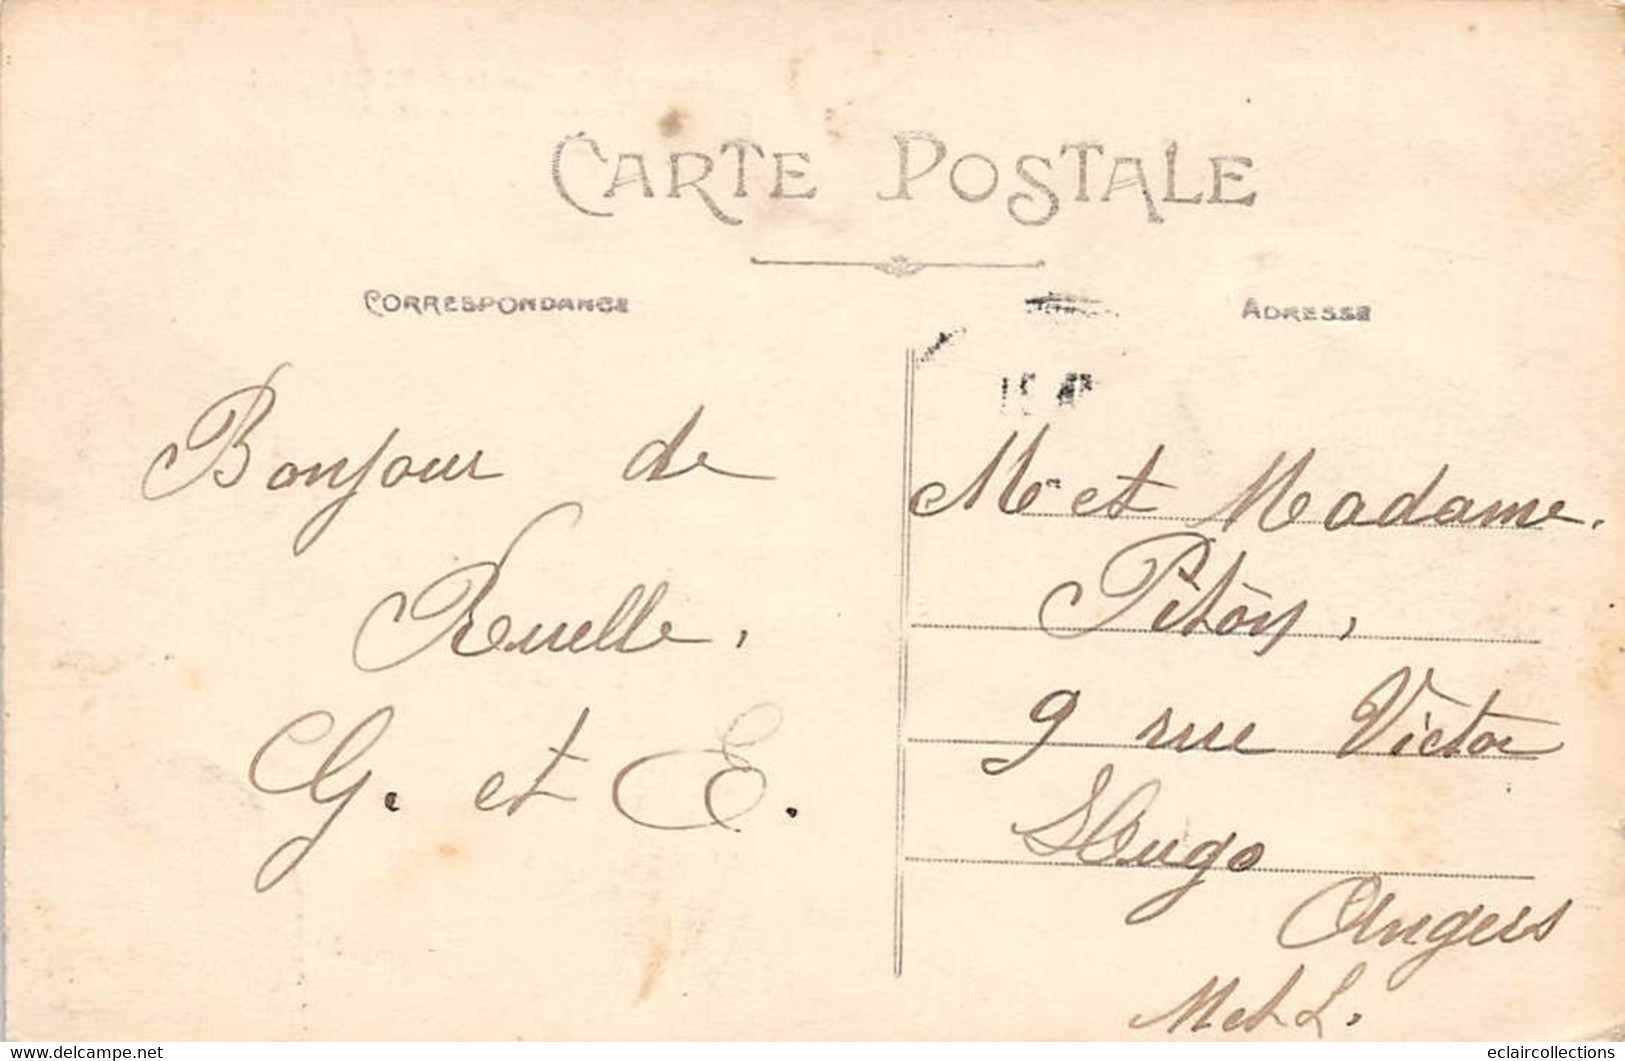 CARTE POSTALE
CORRESPONDANCE
ADRESSE
Bonjour de
Ruelle,
G. et E.
Mr et Madame.
Pitòy,
9 rue Victor
Hugo
Angers
M et L.
www.delcampe.net
eclaircollections